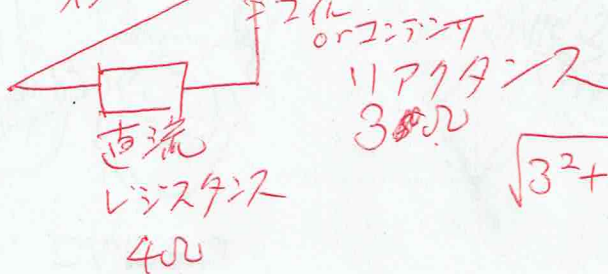 コイル
orコンデンサ
リアクタンス
3Ω
直流
レジスタンス
4Ω
√3²+